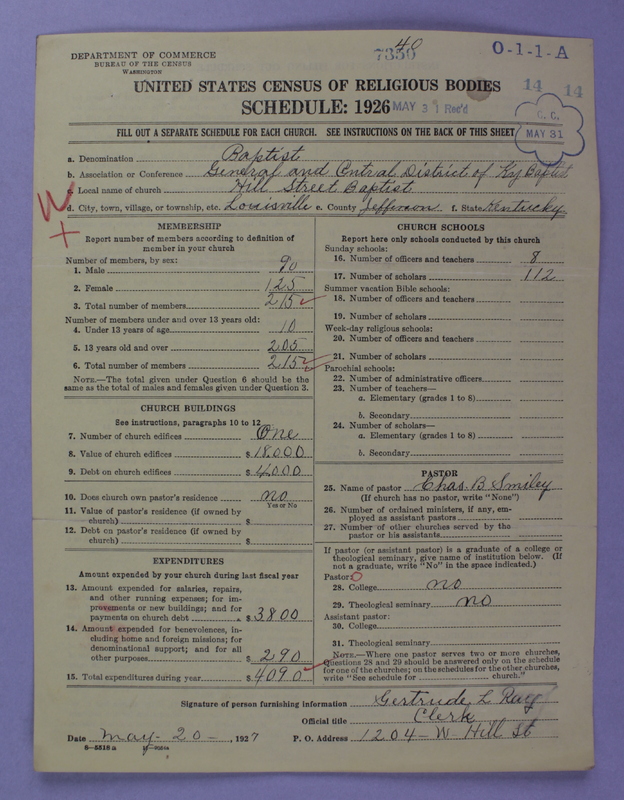 DEPARTMENT OF COMMERCE
BUREAU OF THE CENSUS
WASHINGTON
7350
40
O-1-1-A
UNITED STATES CENSUS OF RELIGIOUS BODIES
14 14
SCHEDULE: 1926
MAY 31 Rec'd
C. C.
MAY 31
FILL OUT A SEPARATE SCHEDULE FOR EACH CHURCH. SEE INSTRUCTIONS ON THE BACK OF THIS SHEET
a. Denomination Baptist
b. Association or Conference General and Cntral District of Ky Baptist
c. Local name of church Hill Street Baptist
d. City, town, village, or township, etc. Louisville e. County Jefferson f. State Kentucky
MEMBERSHIP
Report number of members according to definition of
member in your church
Number of members, by sex:
1. Male 90
2. Female 125
3. Total number of members 215
Number of members under and over 13 years old:
4. Under 13 years of age 10
5. 13 years old and over 205
6. Total number of members 215
NOTE.—The total given under Question 6 should be the
same as the total of males and females given under Question 3.
CHURCH BUILDINGS
See instructions, paragraphs 10 to 12
7. Number of church edifices One
8. Value of church edifices $18,000
9. Debt on church edifices $4000
10. Does church own pastor's residence no
Yes or No
11. Value of pastor's residence (if owned by
church) $
12. Debt on pastor's residence (if owned by
church) $
EXPENDITURES
Amount expended by your church during last fiscal year
13. Amount expended for salaries, repairs,
and other running expenses; for im-
provements or new buildings; and for
payments on church debt $3800
14. Amount expended for benevolences, in-
cluding home and foreign missions; for
denominational support; and for all
other purposes $290
15. Total expenditures during year $4090
CHURCH SCHOOLS
Report here only schools conducted by this church
Sunday schools:
16. Number of officers and teachers 8
17. Number of scholars 112
Summer vacation Bible schools:
18. Number of officers and teachers
19. Number of scholars
Week-day religious schools:
20. Number of officers and teachers
21. Number of scholars
Parochial schools:
22. Number of administrative officers
23. Number of teachers—
a. Elementary (grades 1 to 8)
b. Secondary
24. Number of scholars—
a. Elementary (grades 1 to 8)
b. Secondary
PASTOR
25. Name of pastor Chas. B Smiley
(If church has no pastor, write "None")
26. Number of ordained ministers, if any, em-
ployed as assistant pastors
27. Number of other churches served by the
pastor or his assistants
If pastor (or assistant pastor) is a graduate of a college or
theological seminary, give name of institution below. (If
not a graduate, write "No" in the space indicated.)
Pastor:
28. College no
29. Theological seminary no
Assistant pastor:
30. College
31. Theological seminary
NOTE.—Where one pastor serves two or more churches,
Questions 28 and 29 should be answered only on the schedule
for one of the churches; on the schedules for the other churches,
write "See schedule for church."
Signature of person furnishing information Gertrude L Ray
Official title Clerk
Date May-20-, 1927 P. O. Address 1204-W-Hill St